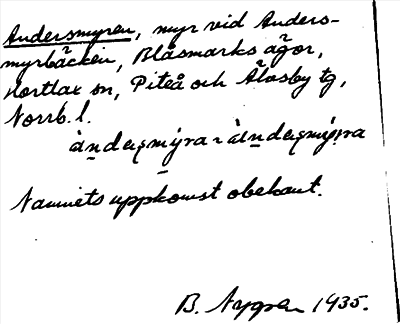 Andersmyren, myr vid Anders-
myrbäcken, Blåsmarks ägor,
Hortlax sn, Piteå och Älvsby tg,
Norrb. l.
Namnets uppkomst obekant.
B. Nygren 1935.